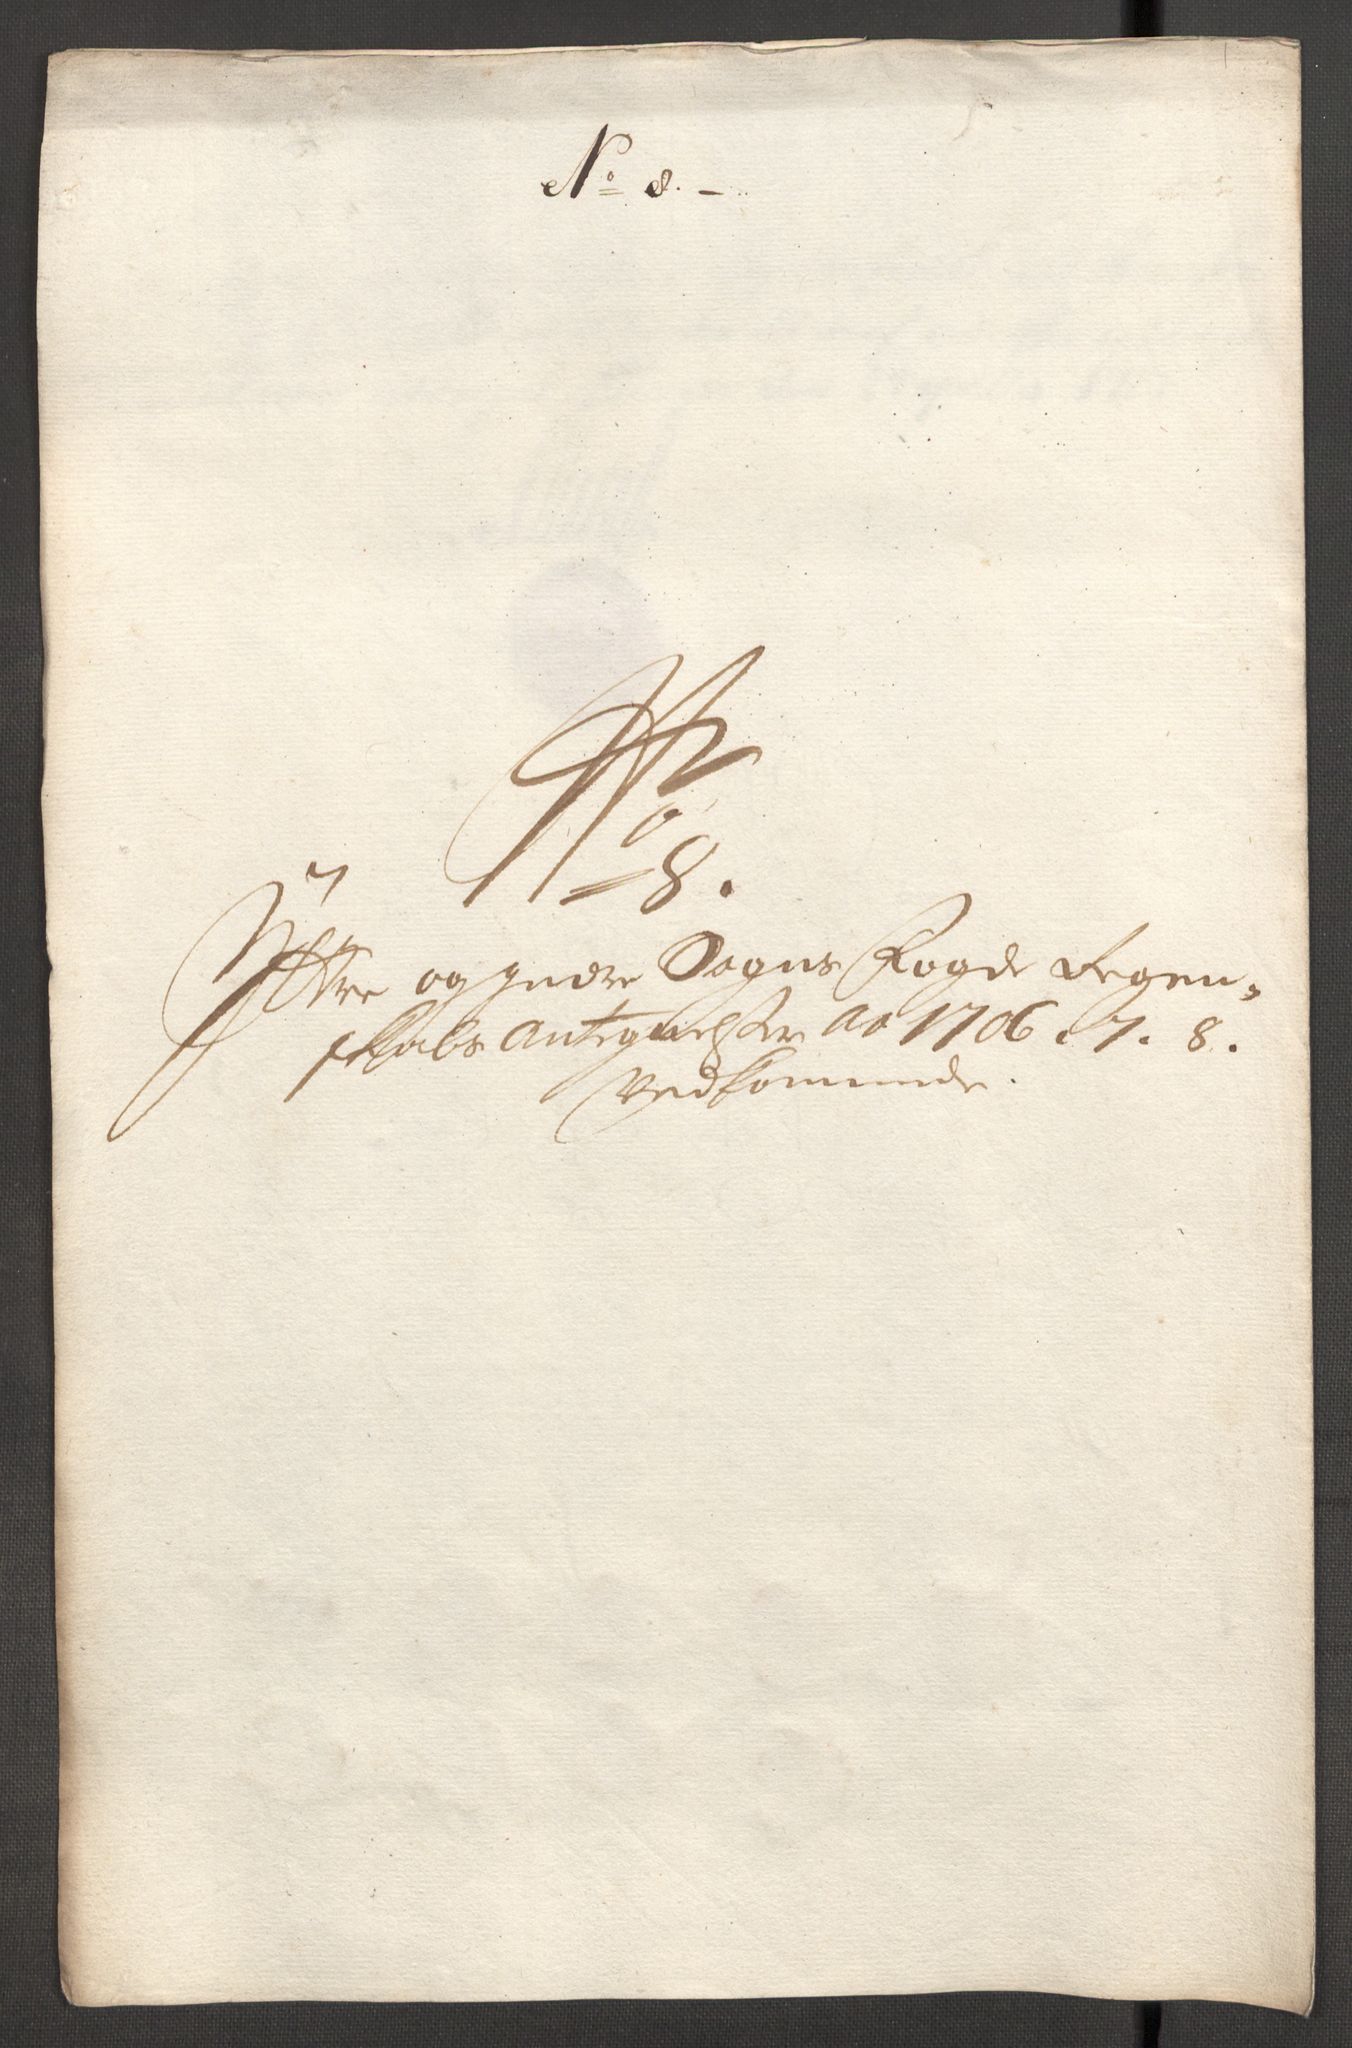 No 8. -
No 8.
Yttre og Indre Sogns Fogde Regen-
skabs Antegnelser Ao 1706. 7. 8.
Vedkommende.